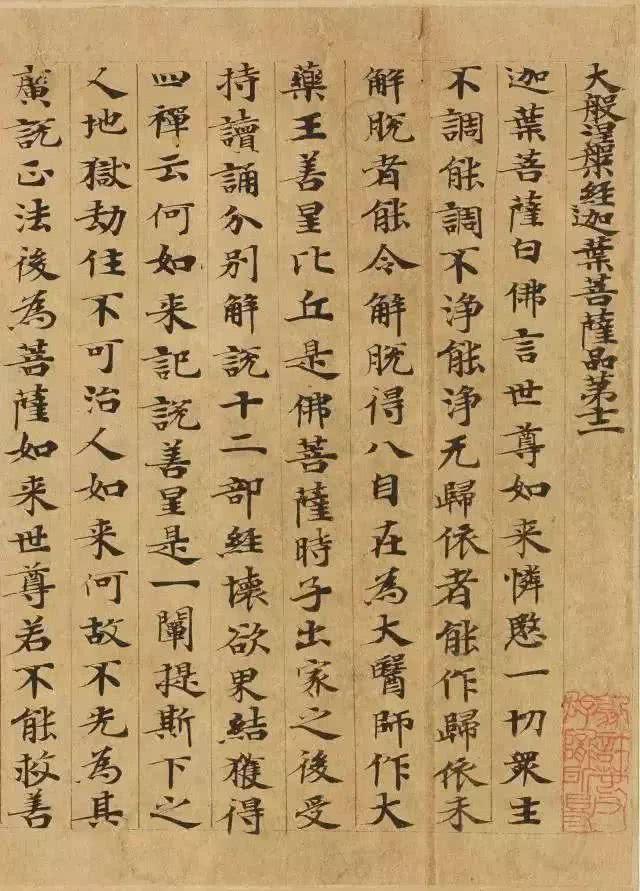 大般涅槃經迦葉菩薩品苐十二
迦葉菩薩白佛言世尊如来憐愍一切衆生
不調能調不浄能浄无歸依者能作歸依未
解脱者能令解脱得八自在為大醫師作大
藥王善星比丘是佛菩薩時子出家之後受
持讀誦分別解說十二部經壞欲界結獲得
四禪云何如来記說善星是一闡提斯下之
人地獄劫住不可治人如来何故不先為其
廣說正法後為菩薩如来世尊若不能救善